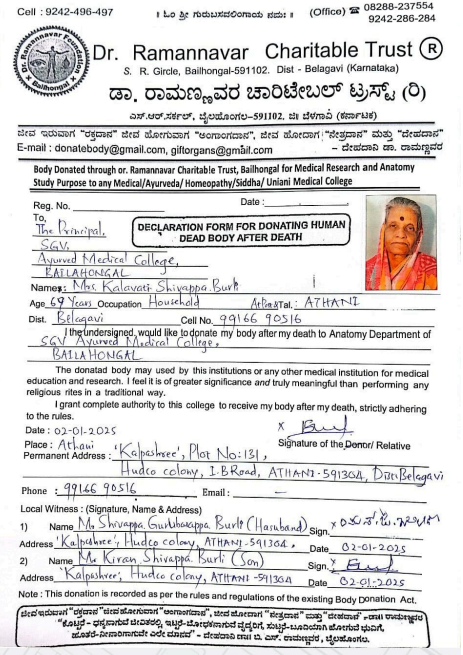 Cell : 9242-496-497
॥ ಓಂ ಶ್ರೀ ಗುರುಬಸವಲಿಂಗಾಯ ನಮಃ ॥
(Office) ☎ 08288-237554
9242-286-284
Dr. Ramannavar Charitable Trust
Bailhongal
Dr. Ramannavar Charitable Trust ®
S. R. Circle, Bailhongal-591102. Dist - Belagavi (Karnataka)
ಡಾ. ರಾಮಣ್ಣವರ ಚಾರಿಟೇಬಲ್ ಟ್ರಸ್ಟ್ (ರಿ)
ಎಸ್.ಆರ್.ಸರ್ಕಲ್, ಬೈಲಹೊಂಗಲ-591102, ಜಿಃ ಬೆಳಗಾವಿ (ಕರ್ನಾಟಕ)
ಜೀವ ಇರುವಾಗ "ರಕ್ತದಾನ" ಜೀವ ಹೋಗುವಾಗ "ಅಂಗಾಂಗದಾನ", ಜೀವ ಹೋದಾಗ "ನೇತ್ರದಾನ" ಮತ್ತು "ದೇಹದಾನ"
E-mail : donatebody@gmail.com, giftorgans@gmail.com
- ದೇಹದಾನಿ ಡಾ. ರಾಮಣ್ಣವರ
Body Donated through or. Ramannavar Charitable Trust, Bailhongal for Medical Research and Anatomy
Study Purpose to any Medical/Ayurveda/ Homeopathy/Siddha/ Uniani Medical College
Reg. No.
Date :
To,
The Principal,
SGV,
Ayurved Medical College,
BAILAHONGAL
DECLARATION FORM FOR DONATING HUMAN
DEAD BODY AFTER DEATH
Name: Mrs. Kalavati Shivappa. Burli
Age 69 Years Occupation Household At/Tal.: ATHANI
Dist. Belagavi Cell No. 99166 90516
I the undersigned, would like to donate my body after my death to Anatomy Department of
SGV Ayurved Medical College,
BAILAHONGAL
The donatad body may be used by this institutions or any other medical institution for medical
education and research. I feel it is of greater significance and truly meaningful than performing any
religious rites in a traditional way.
I grant complete authority to this college to receive my body after my death, strictly adhering
to the rules.
Date : 02-01-2025
X
Place : Athani
Signature of the Donor/ Relative
Permanent Address : 'Kalpashree', Plot No: 131,
Hudco colony, I.B Road, ATHANI-591304, Dist: Belagavi
Phone : 99166 90516 Email : —
Local Witness : (Signature, Name & Address)
1) Name Mr. Shivappa Gurubasappa Burli (Husband) Sign. X
Address 'Kalpashree', Hudco colony, ATHANI-591304, Date 02-01-2025
2) Name Mr. Kiran Shivappa. Burli (Son) Sign. X
Address 'Kalpashree', Hudco colony, ATHANI-591304 Date 02-01-2025
Note : This donation is recorded as per the rules and regulations of the existing Body Donation Act.
ಜೀವ ಇರುವಾಗ "ರಕ್ತದಾನ" ಜೀವ ಹೋಗುವಾಗ "ಅಂಗಾಂಗದಾನ", ಜೀವ ಹೋದಾಗ "ನೇತ್ರದಾನ" ಮತ್ತು "ದೇಹದಾನ" -ಡಾಃ ರಾಮಣ್ಣವರ
- ದೇಹದಾನಿ ಡಾಃ ಬಿ. ಎಸ್. ರಾಮಣ್ಣವರ, ಬೈಲಹೊಂಗಲ.